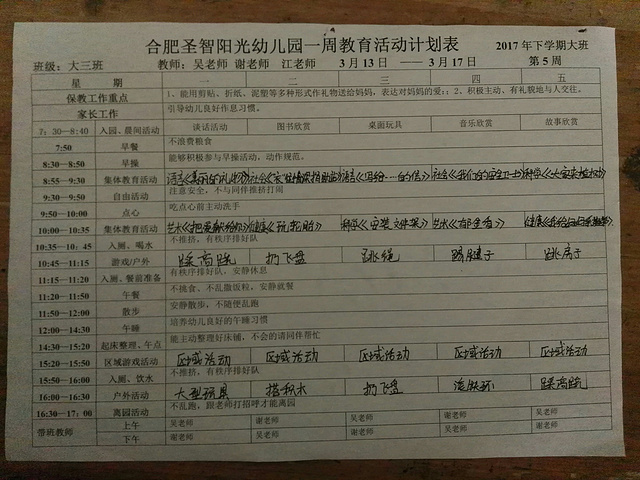 合肥圣智阳光幼儿园一周教育活动计划表 2017年下学期大班
班级：大三班 教师：吴老师 谢老师 江老师 3月13日 ——3月17日 第5周
星 期 一 二 三 四 五
保教工作重点 1、能用剪贴、折纸、泥塑等多种形式作礼物送给妈妈，表达对妈妈的爱；2、积极主动、有礼貌地与人交往。
家长工作 引导幼儿良好作息习惯。
7：30—8:40 入园、晨间活动 谈话活动 图书欣赏 桌面玩具 音乐欣赏 故事欣赏
7:50 早餐 不浪费粮食
8:30—8:50 早操 能够积极参与早操活动，动作规范。
8:55—9:30 集体教育活动
9:30—9:50 自由活动 注意安全，不与同伴推挤打闹
9:50—10:00 点心 吃点心前主动洗手
10:00—10:35 集体教育活动 科学《安装文件架》
10:35—10：45 入厕、喝水 不推挤，有秩序排好队
10:45—11:15 游戏/户外 踩高跷 扔飞盘 跳绳 踢毽子 跳房子
11:15—11:20 入厕、餐前准备 有秩序排好队，安静休息
11:20—11:50 午餐 不挑食、不乱撒饭粒，安静就餐
11:50—12:00 散步 安静散步，不随便乱跑
12:00—14:30 午睡 培养幼儿良好的午睡习惯
14:30—15:20 起床整理、午点 能主动整理好床铺，不会的请同伴帮忙
15:20—15:50 区域游戏活动 区域活动 区域活动 区域活动 区域活动 区域活动
15:50—16:00 入厕、饮水 不推挤，有秩序排好队
16:00—16:30 户外活动 大型玩具 搭积木 扔飞盘 踩高跷
16:30—17：00 离园活动 不乱跑，跟老师打招呼才能离园
带班教师 上午 吴老师 谢老师 吴老师 谢老师 吴老师
下午 谢老师 吴老师 谢老师 吴老师 谢老师